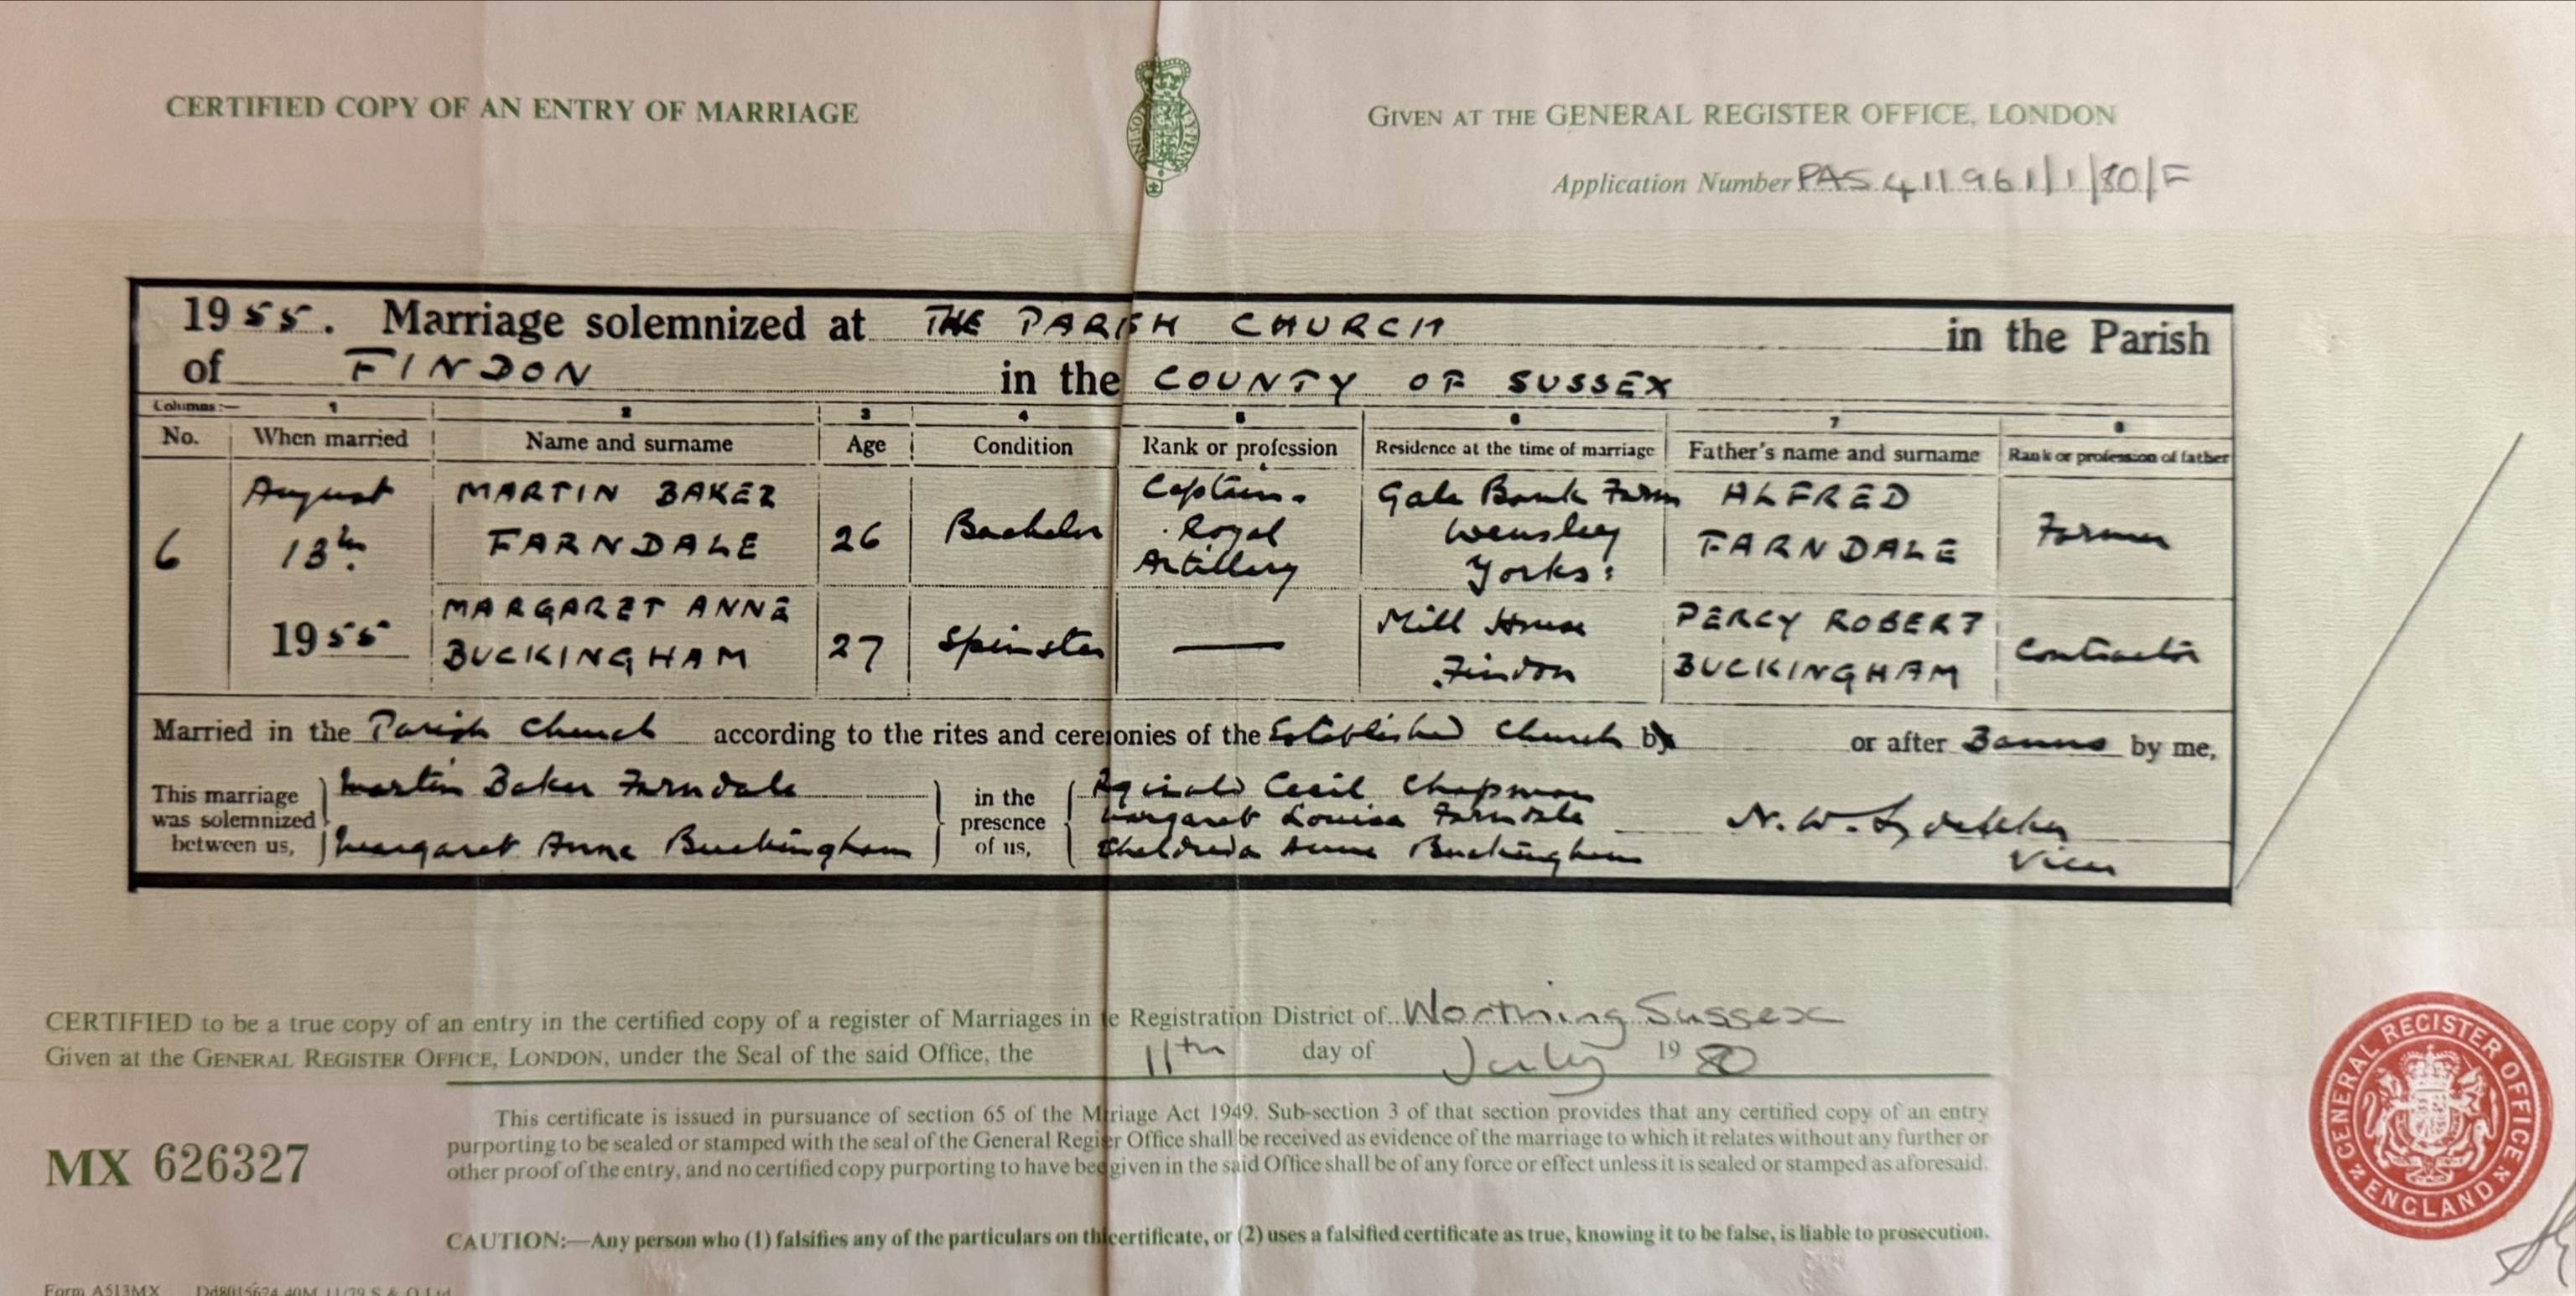 CERTIFIED COPY OF AN ENTRY OF MARRIAGE
GIVEN AT THE GENERAL REGISTER OFFICE, LONDON
Application Number PAS 411961/1/80/F
1955. Marriage solemnized at THE PARISH CHURCH in the Parish
of FINDON in the COUNTY OF SUSSEX
Columns:— 1 2 3 4 5 6 7 8
No. When married Name and surname Age Condition Rank or profession Residence at the time of marriage Father's name and surname Rank or profession of father
6 August 13th 1955
MARTIN BAKER FARNDALE 26 Bachelor Captain. Royal Artillery Gale Bank Farm Wensley Yorks: ALFRED FARNDALE Farmer
MARGARET ANNE BUCKINGHAM 27 Spinster — Mill House Findon PERCY ROBERT BUCKINGHAM Contractor
Married in the Parish Church according to the rites and ceremonies of the Established Church by or after Banns by me,
This marriage was solemnized between us,
Martin Baker Farndale
Margaret Anne Buckingham
in the presence of us,
Reginald Cecil Chapman
Margaret Louisa Farndale
Anne Buckingham
N. W.
Vicar
CERTIFIED to be a true copy of an entry in the certified copy of a register of Marriages in e Registration District of Worthing Sussex
Given at the GENERAL REGISTER OFFICE, LONDON, under the Seal of the said Office, the 11th day of July 1980
This certificate is issued in pursuance of section 65 of the Marriage Act 1949. Sub-section 3 of that section provides that any certified copy of an entry
purporting to be sealed or stamped with the seal of the General Register Office shall be received as evidence of the marriage to which it relates without any further or
other proof of the entry, and no certified copy purporting to have been given in the said Office shall be of any force or effect unless it is sealed or stamped as aforesaid.
MX 626327
CAUTION:—Any person who (1) falsifies any of the particulars on this certificate, or (2) uses a falsified certificate as true, knowing it to be false, is liable to prosecution.
GENERAL REGISTER OFFICE
ENGLAND
Form A513MX